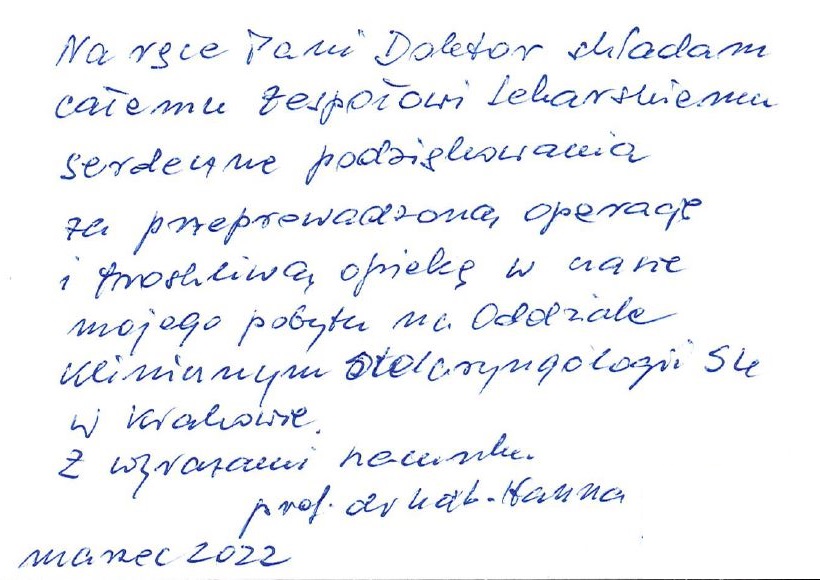 Na ręce Pani Doktor składam
całemu zespołowi lekarskiemu
serdeczne podziękowania
za przeprowadzoną operację
i troskliwą opiekę w czasie
mojego pobytu na Oddziale
Klinicznym Otolaryngologii SU
w Krakowie.
Z wyrazami szacunku.
prof. dr hab. Hanna
marzec 2022